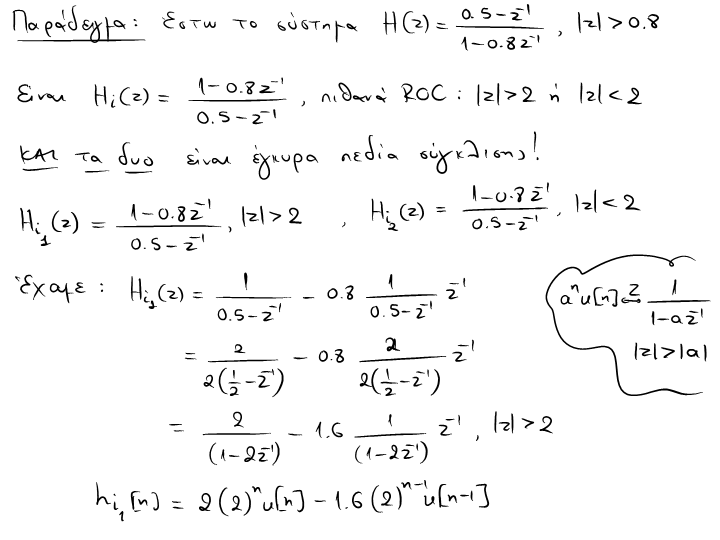 Παράδειγμα: Έστω το σύστημα H(z) = (0.5 - z⁻¹)/(1 - 0.8z⁻¹), |z| > 0.8
Είναι Hi(z) = (1 - 0.8z⁻¹)/(0.5 - z⁻¹), πιθανά ROC: |z| > 2 ή |z| < 2
ΚΑΙ τα δυο είναι έγκυρα πεδία σύγκλισης!
Hi₁(z) = (1 - 0.8z⁻¹)/(0.5 - z⁻¹), |z| > 2, Hi₂(z) = (1 - 0.8z⁻¹)/(0.5 - z⁻¹), |z| < 2
Έχουμε: Hi₁(z) = 1/(0.5 - z⁻¹) - 0.8 1/(0.5 - z⁻¹) z⁻¹
aⁿu[n] ↔ᶻ 1/(1 - az⁻¹)
|z| > |a|
= 2/(2(1/2 - z⁻¹)) - 0.8 2/(2(1/2 - z⁻¹)) z⁻¹
= 2/(1 - 2z⁻¹) - 1.6 1/(1 - 2z⁻¹) z⁻¹, |z| > 2
hi₁[n] = 2(2)ⁿu[n] - 1.6(2)ⁿ⁻¹u[n-1]